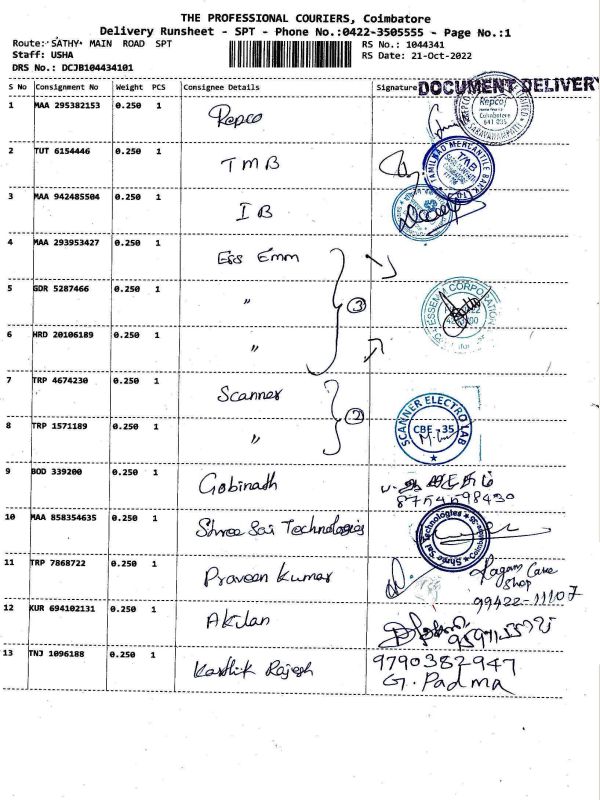 THE PROFESSIONAL COURIERS, Coimbatore
Delivery Runsheet - SPT - Phone No.:0422-3505555 - Page No.:1
Route: SATHY MAIN ROAD SPT
RS No.: 1044341
Staff: USHA
RS Date: 21-Oct-2022
DRS No.: DCJB104434101
S No Consignment No Weight PCS Consignee Details Signature
DOCUMENT DELIVERY
1 MAA 295382153 0.250 1 Repco
Repco
Coimbatore
641 035
2 TUT 6154446 0.250 1 TMB
TAMILNAD MERCANTILE BANK LTD
TMB
3 MAA 942485504 0.250 1 IB
4 MAA 293953427 0.250 1 Ess Emm
5 GDR 5287466 0.250 1 "
3
ESSEMM CORPORATION
6 HRD 20106189 0.250 1 "
7 TRP 4674230 0.250 1 Scanner
2
SCANNER ELECTRO LAB
CBE - 35
8 TRP 1571189 0.250 1 "
9 BOD 339200 0.250 1 Gobinath
8754598430
10 MAA 858354635 0.250 1 Shree Sai Technologies
Shree Sai Technologies
11 TRP 7868722 0.250 1 Praveen Kumar
Ragam Cake
Shop
99422-11107
12 KUR 694102131 0.250 1 Akilan
13 TNJ 1096188 0.250 1 Karthik Rajesh
9790382947
G. Padma